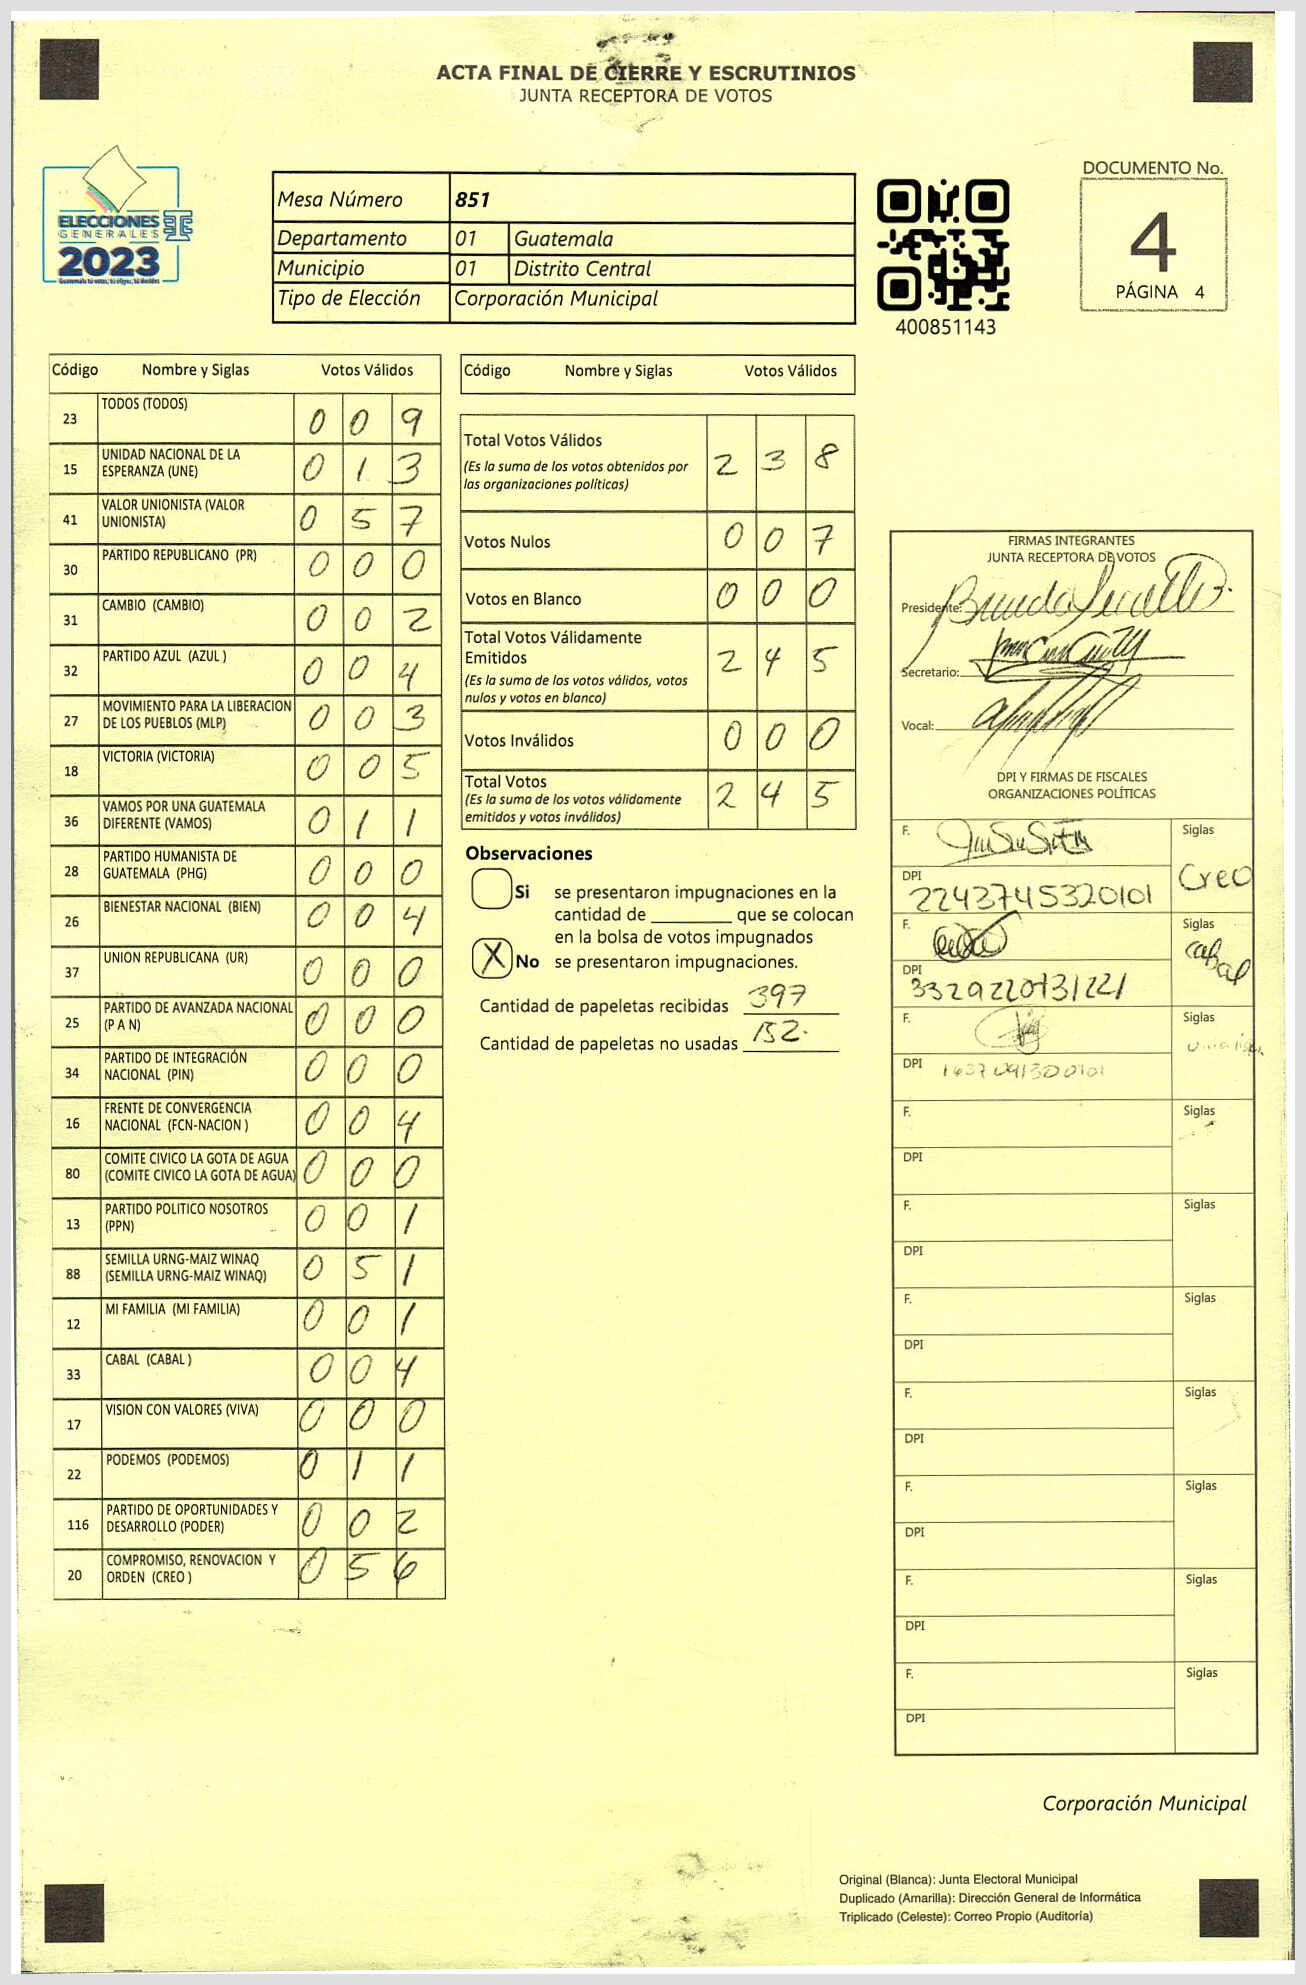 ACTA FINAL DE CIERRE Y ESCRUTINIOS
JUNTA RECEPTORA DE VOTOS
ELECCIONES
GENERALES
2023
Guatemala tú votas, tú eliges, tú decides
Mesa Número 851
Departamento 01 Guatemala
Municipio 01 Distrito Central
Tipo de Elección Corporación Municipal
400851143
DOCUMENTO No.
4
PÁGINA 4
Código Nombre y Siglas Votos Válidos
23 TODOS (TODOS) 0 0 9
15 UNIDAD NACIONAL DE LA ESPERANZA (UNE) 0 1 3
41 VALOR UNIONISTA (VALOR UNIONISTA) 0 5 7
30 PARTIDO REPUBLICANO (PR) 0 0 0
31 CAMBIO (CAMBIO) 0 0 2
32 PARTIDO AZUL (AZUL ) 0 0 4
27 MOVIMIENTO PARA LA LIBERACION DE LOS PUEBLOS (MLP) 0 0 3
18 VICTORIA (VICTORIA) 0 0 5
36 VAMOS POR UNA GUATEMALA DIFERENTE (VAMOS) 0 1 1
28 PARTIDO HUMANISTA DE GUATEMALA (PHG) 0 0 0
26 BIENESTAR NACIONAL (BIEN) 0 0 4
37 UNION REPUBLICANA (UR) 0 0 0
25 PARTIDO DE AVANZADA NACIONAL (P A N) 0 0 0
34 PARTIDO DE INTEGRACIÓN NACIONAL (PIN) 0 0 0
16 FRENTE DE CONVERGENCIA NACIONAL (FCN-NACION ) 0 0 4
80 COMITE CIVICO LA GOTA DE AGUA (COMITE CIVICO LA GOTA DE AGUA) 0 0 0
13 PARTIDO POLITICO NOSOTROS (PPN) 0 0 1
88 SEMILLA URNG-MAIZ WINAQ (SEMILLA URNG-MAIZ WINAQ) 0 5 1
12 MI FAMILIA (MI FAMILIA) 0 0 1
33 CABAL (CABAL ) 0 0 4
17 VISION CON VALORES (VIVA) 0 0 0
22 PODEMOS (PODEMOS) 0 1 1
116 PARTIDO DE OPORTUNIDADES Y DESARROLLO (PODER) 0 0 2
20 COMPROMISO, RENOVACION Y ORDEN (CREO ) 0 5 6
Código Nombre y Siglas Votos Válidos
Total Votos Válidos 2 3 8
(Es la suma de los votos obtenidos por
las organizaciones políticas)
Votos Nulos 0 0 7
Votos en Blanco 0 0 0
Total Votos Válidamente
Emitidos 2 4 5
(Es la suma de los votos válidos, votos
nulos y votos en blanco)
Votos Inválidos 0 0 0
Total Votos 2 4 5
(Es la suma de los votos válidamente
emitidos y votos inválidos)
Observaciones
Si se presentaron impugnaciones en la
cantidad de ________ que se colocan
en la bolsa de votos impugnados
X No se presentaron impugnaciones.
Cantidad de papeletas recibidas 397
Cantidad de papeletas no usadas 152
FIRMAS INTEGRANTES
JUNTA RECEPTORA DE VOTOS
Presidente:
Secretario:
Vocal:
DPI Y FIRMAS DE FISCALES
ORGANIZACIONES POLÍTICAS
F. Siglas
DPI 2243745320101 Creo
F. Siglas
DPI cabal
F. Siglas
DPI
F. Siglas
DPI
F. Siglas
DPI
F. Siglas
DPI
F. Siglas
DPI
F. Siglas
DPI
F. Siglas
DPI
F. Siglas
DPI
Corporación Municipal
Original (Blanca): Junta Electoral Municipal
Duplicado (Amarilla): Dirección General de Informática
Triplicado (Celeste): Correo Propio (Auditoría)